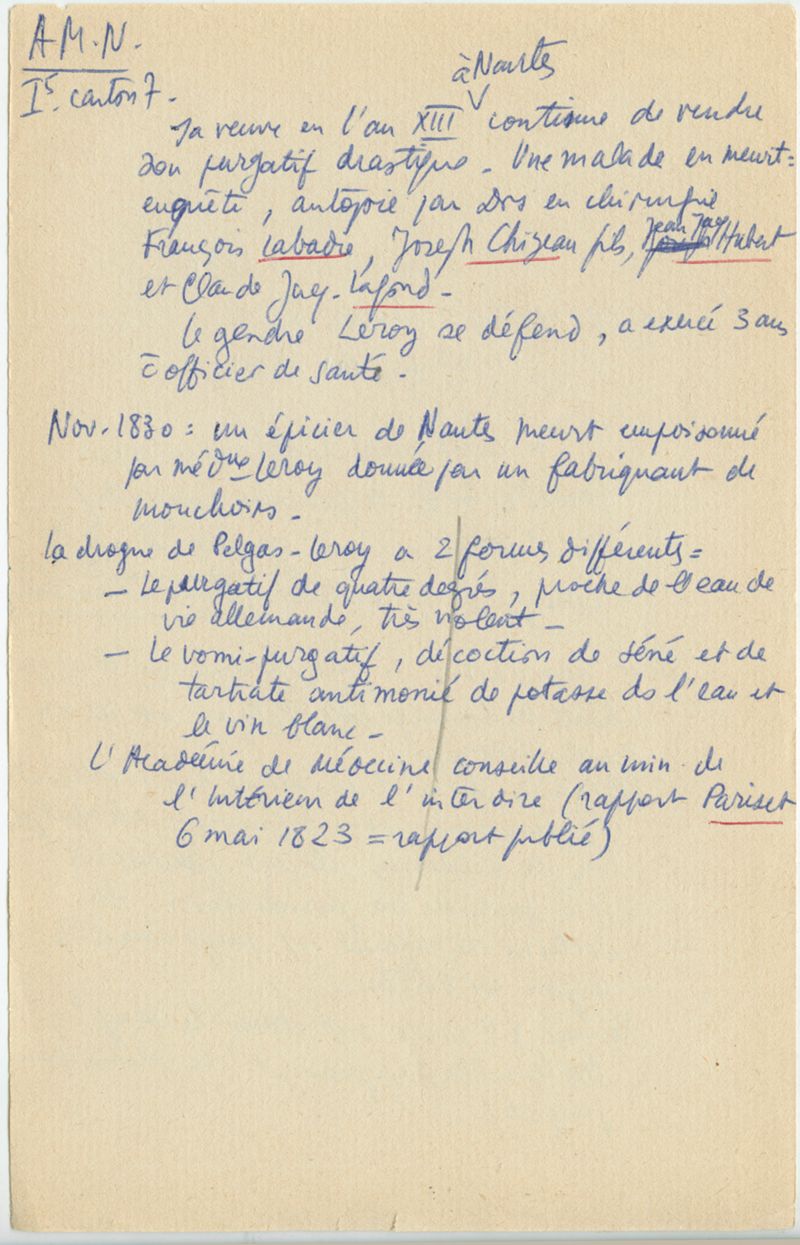 A.M.N.
I5 carton 7.
à Nantes
Sa veuve en l'an XIII continue de vendre
son purgatif drastique. Une malade en meurt =
enquête, autopsie par Drs en chirurgie
François Labadie, Joseph Chizeau fils, Jean Jacq Hubert
et Claude Jacq. Lafond.
Le gendre Leroy se défend, a exercé 3 ans
c officier de santé.
Nov. 1830 = un épicier de Nantes meurt empoisonné
par médne Leroy donnée par un fabriquant de
mouchoirs.
La drogue de Pelgas-Leroy a 2 formes différents =
- Le purgatif de quatre degrés, proche de l'eau de
vie allemande, très violent -
- Le vomi-purgatif, décoction de séné et de
tartrate antimonié de potasse ds l'eau et
le vin blanc -
L'Académie de Médecine conseille au min. de
l'Intérieur de l'interdire (rapport Pariset
6 mai 1823 = rapport publié)